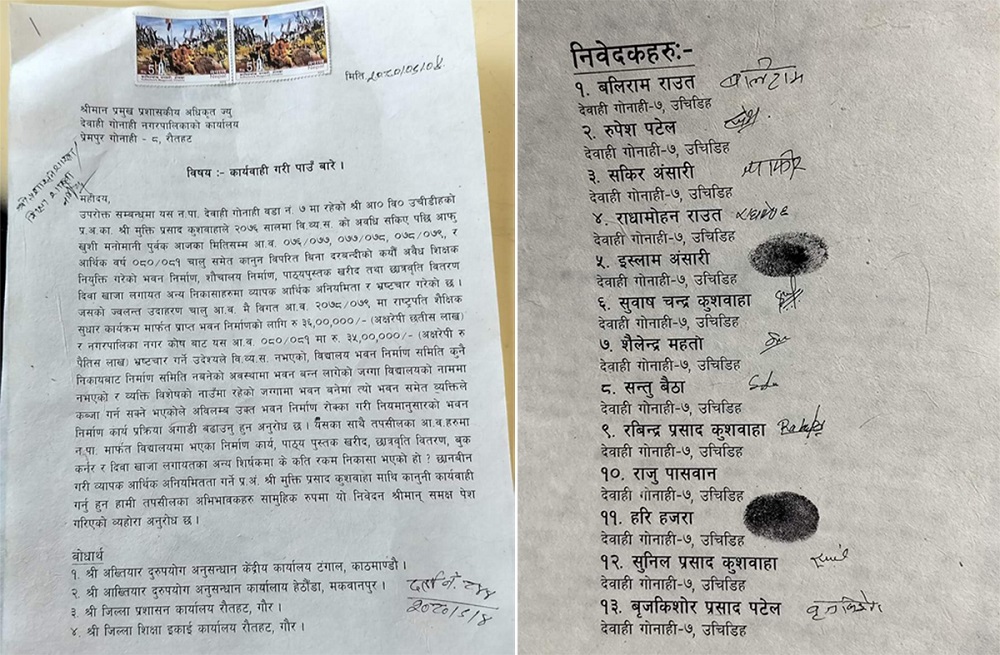 मिति २०८०/०८/०८
श्रीमान प्रमुख प्रशासकीय अधिकृत ज्यु
देवाही गोनाही नगरपालिकाको कार्यालय
प्रेमपुर गोनाही - ८, रौतहट
विषय :- कार्यवाही गरी पाउँ बारे ।
महोदय,
उपरोक्त सम्बन्धमा यस न.पा. देवाही गोनाही वडा नं. ७ मा रहेको श्री आ० वि० उचीडीहको
प्र.अ.का. श्री मुक्ति प्रसाद कुशवाहाले २०७६ सालमा वि.व्य.स. को अवधि सकिए पछि आफु
खुशी मनोमानी पुर्वक आजका मितिसम्म आ.ब. ०७६/०७७, ०७७/०७८, ०७८/०७९, र
आर्थिक वर्ष ०८०/०८१ चालु समेत कानुन विपरित बिना दरबन्दीको कयौं अवैध शिक्षक
नियुक्ति गरेको भवन निर्माण, शौचालय निर्माण, पाठ्यपुस्तक खरीद तथा छात्रवृति वितरण
दिवा खाजा लगायत अन्य निकासाहरुमा व्यापक आर्थिक अनियमिता र भ्रष्टचार गरेको छ ।
जसको ज्वलन्त उदाहरण चालु आ.ब. मै विगत आ.ब. २०७८/०७९ मा राष्ट्रपति शैक्षिक
सुधार कार्यक्रम मार्फत प्राप्त भवन निर्माणको लागि रु ३६,००,०००/- (अक्षरेपी छतीस लाख)
र नगरपालिका नगर कोष बाट यस आ.ब. ०८०/०८१ मा रु. ३५,००,०००/- (अक्षरेपी रु
पैतिस लाख) भ्रष्टचार गर्ने उदेश्यले वि.व्य.स. नभएको, विद्यालय भवन निर्माण समिति कुनै
निकायबाट निर्माण समिति नबनेको अवस्थामा भवन बन्न लागेको जग्गा विद्यालयको नाममा
नभएको र व्यक्ति विशेषको नाउँमा रहेको जग्गामा भवन बनेमा त्यो भवन समेत व्यक्तिले
कब्जा गर्न सक्ने भएकोले अविलम्ब उक्त भवन निर्माण रोक्का गरी नियमानुसारको भवन
निर्माण कार्य प्रक्रिया अगाडी बढाउनु हुन अनुरोध छ । यसका साथै तपसीलका आ.ब.हरुमा
न.पा. मार्फत विद्यालयमा भएका निर्माण कार्य, पाठ्य पुस्तक खरीद, छात्रवृति वितरण, बुक
कर्नर र दिवा खाजा लगायतका अन्य शिर्षकमा के कति रकम निकासा भएको हो ? छानबीन
गरी व्यापक आर्थिक अनियमितता गर्ने प्र.अं. श्री मुक्ति प्रसाद कुशवाहा माथि कानुनी कार्यवाही
गर्नु हुन हामी तपसीलका अभिभावकहरु सामुहिक रुपमा यो निवेदन श्रीमान् समक्ष पेश
गरिएको व्यहोरा अनुरोध छ ।
बोधार्थ
१. श्री अख्तियार दुरुपयोग अनुसन्धान केंद्रीय कार्यालय टंगाल, काठमाण्डौ ।
२. श्री आख्तियार दुरुपयोग अनुसन्धान कार्यालाय हेठौंडा, मकवानपुर ।
३. श्री जिल्ला प्रशासन कार्यालय रौतहट, गौर ।
४. श्री जिल्ला शिक्षा इकाई कार्यालय रौतहट, गौर ।
दर्ता नं.
२०८०/८/८
निवेदकहरुः-
१. बलिराम राउत बलिराम
देवाही गोनाही-७, उचिडिह
२. रुपेश पटेल
देवाही गोनाही-७, उचिडिह
३. सकिर अंसारी
देवाही गोनाही-७, उचिडिह
४. राधामोहन राउत
देवाही गोनाही-७, उचिडिह
५. इस्लाम अंसारी
देवाही गोनाही-७, उचिडिह
६. सुवाष चन्द्र कुशवाहा
देवाही गोनाही-७, उचिडिह
७. शैलेन्द्र महतो
देवाही गोनाही-७, उचिडिह
८. सन्तु बैठा
देवाही गोनाही-७, उचिडिह
९. रबिन्द्र प्रसाद कुशवाहा
देवाही गोनाही-७, उचिडिह
१०. राजु पासवान
देवाही गोनाही-७, उचिडिह
११. हरि हजरा
देवाही गोनाही-७, उचिडिह
१२. सुनिल प्रसाद कुशवाहा
देवाही गोनाही-७, उचिडिह
१३. बृजकिशोर प्रसाद पटेल
देवाही गोनाही-७, उचिडिह